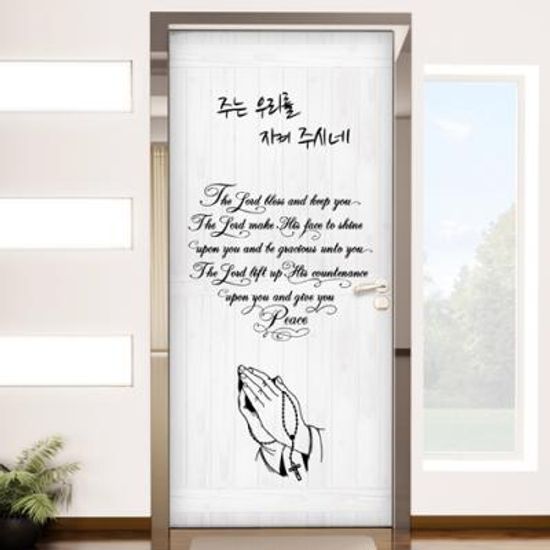 주는 우리를
지켜 주시네
The Lord bless and keep you
The Lord make His face to shine
upon you and be gracious unto you
The Lord lift up His countenance
upon you and give you
Peace